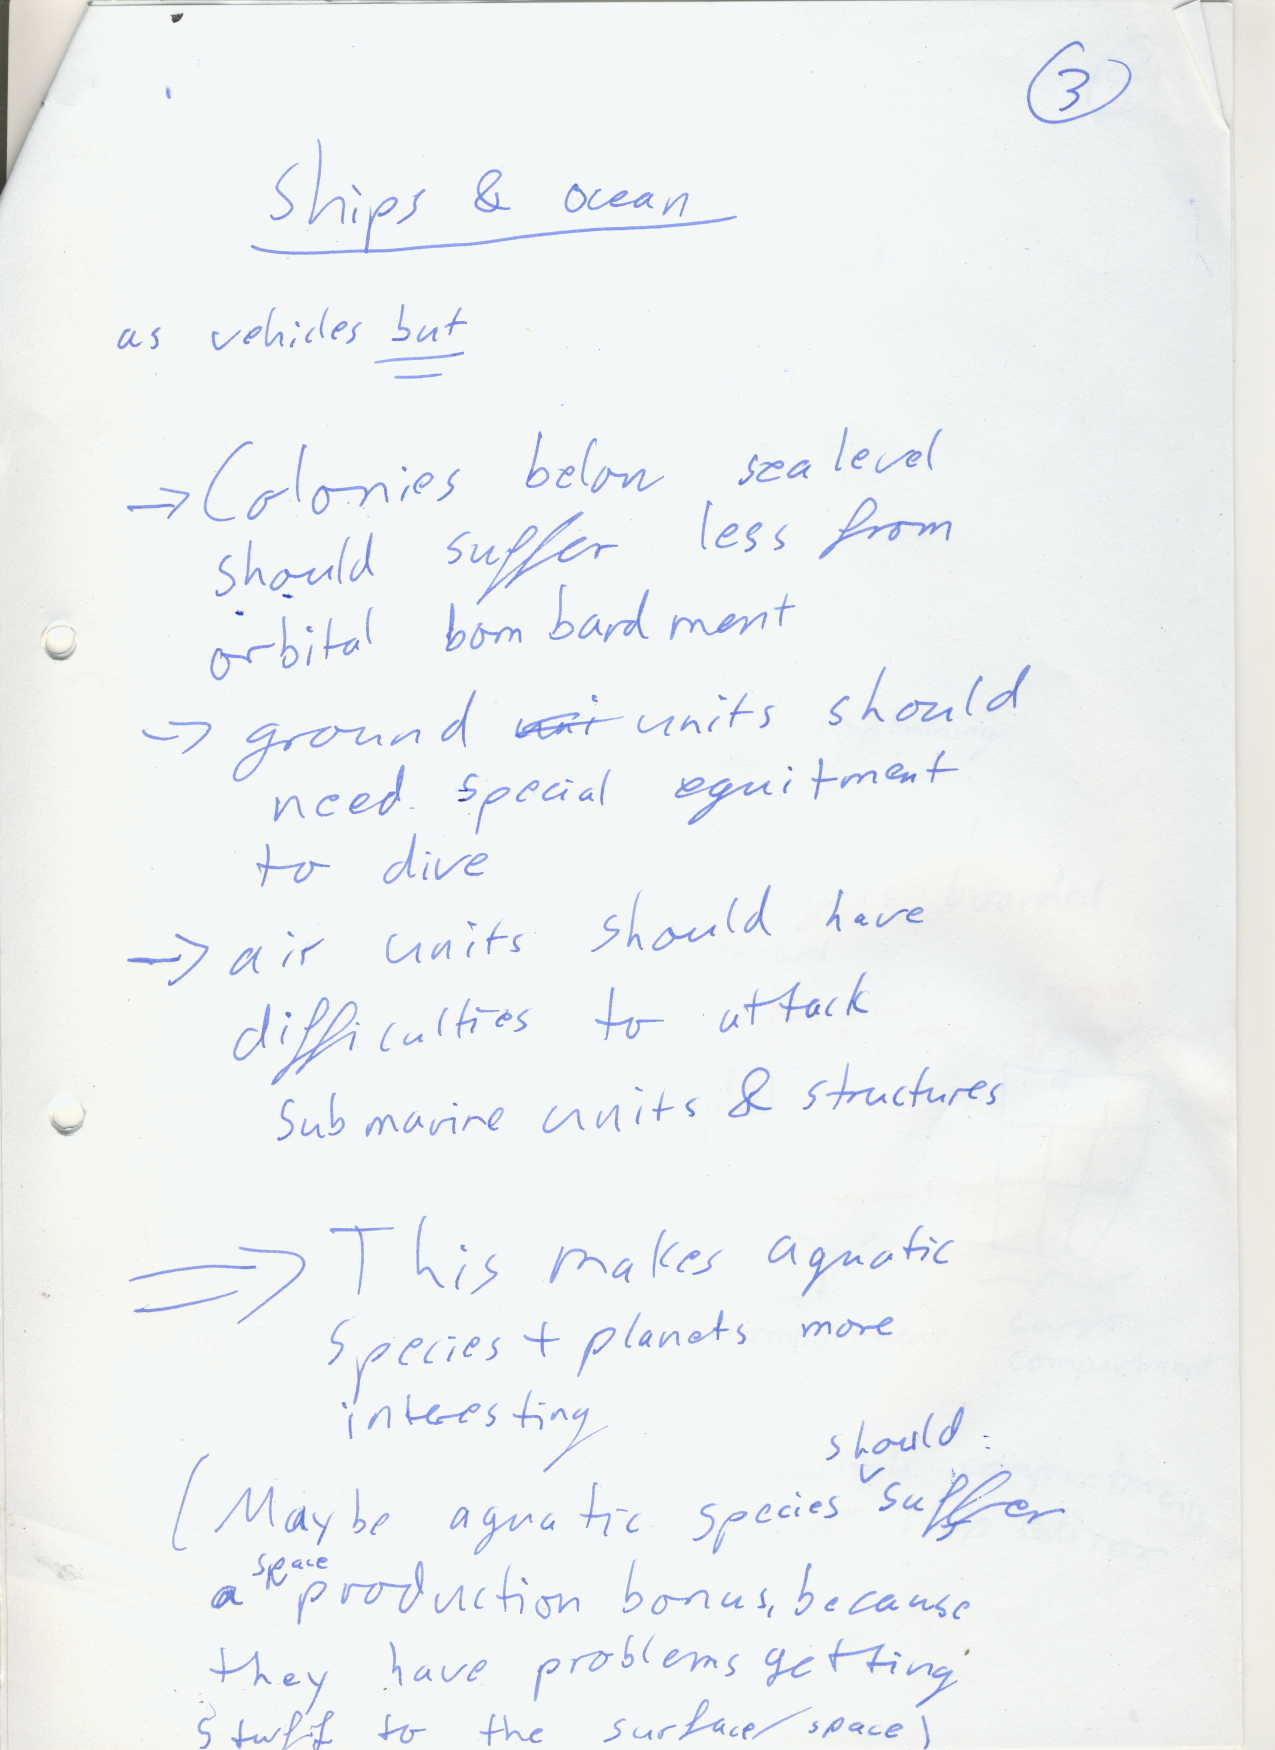 3
Ships & ocean
as vehicles but
→ Colonies below sealevel
should suffer less from
orbital bombardment
→ ground uni units should
need special equitment
to dive
→ air units should have
difficulties to attack
Submarine units & structures
⇒ This makes aquatic
species + planets more
interesting
(Maybe aquatic species should suffer
a space production bonus, because
they have problems getting
stuff to the surface/space)